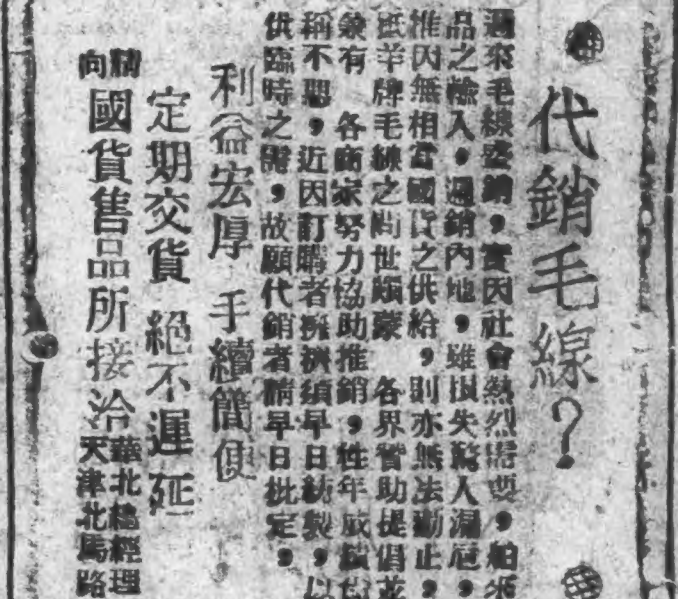 代銷毛線？
邇來毛線暢銷，實因社會熱烈需要，舶來
品之輸入，遍銷內地，雖損失驚人漏卮，
惟因無相當國貨之供給，則亦無法勸止，
羊牌毛線之問世頗蒙　各界贊助提倡並
蒙有　各商家努力協助推銷，年成績
稱不惡，近因訂購者擁擠須早日紡製，以
供臨時之需，故願代銷者請早日批定，
利益宏厚　手續簡便
定期交貨　絕不遲延
請向國貨售品所接洽
華北總經理
天津北馬路